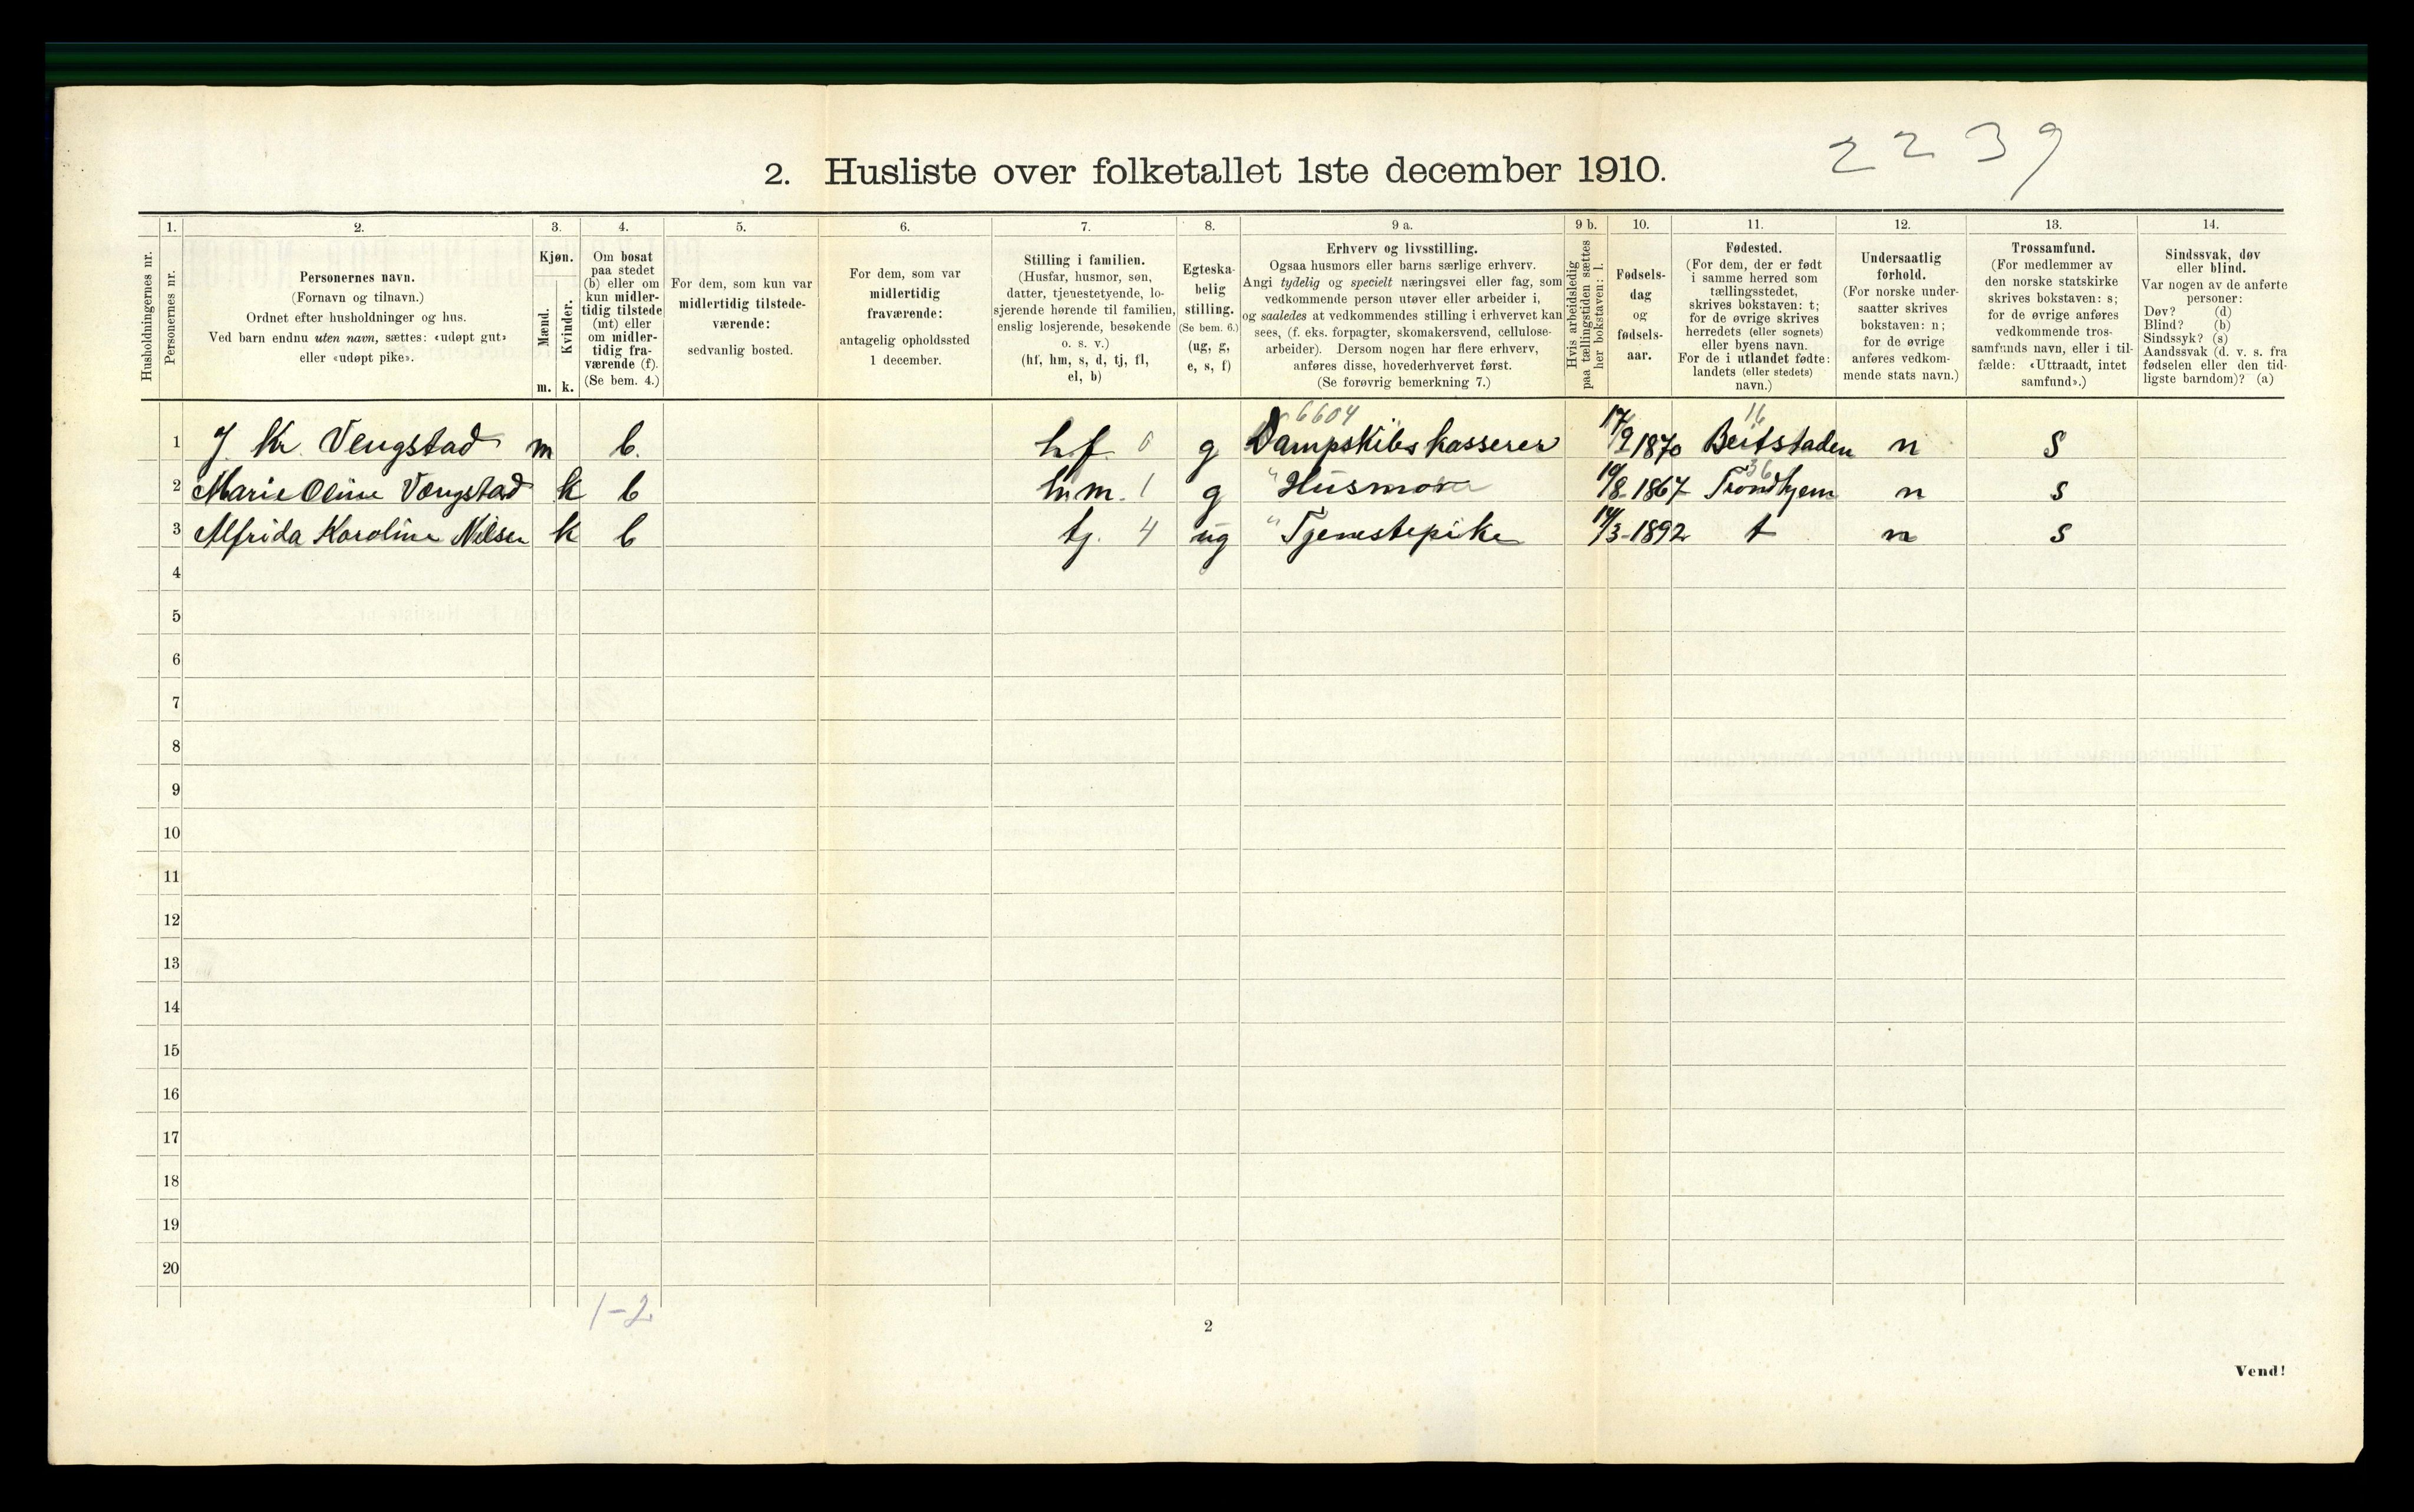 2239
2. Husliste over folketallet 1ste december 1910.
Husholdningernes nr.
1.
Personernes nr.
2.
Personernes navn.
(Fornavn og tilnavn.)
Ordnet efter husholdninger og hus.
Ved barn endnu uten navn, sættes: «udøpt gut»
eller «udøpt pike».
3.
Kjøn.
Mænd.
Kvinder.
m. k.
4.
Om bosat
paa stedet
(b) eller om
kun midler-
tidig tilstede
(mt) eller
om midler-
tidig fra-
værende (f).
(Se bem. 4.)
5.
For dem, som kun var
midlertidig tilstede-
værende:
sedvanlig bosted.
6.
For dem, som var
midlertidig
fraværende:
antagelig opholdssted
1 december.
7.
Stilling i familien.
(Husfar, husmor, søn,
datter, tjenestetyende, lo-
sjerende hørende til familien,
enslig losjerende, besøkende
o. s. v.)
(hf, hm, s, d, tj, fl,
el, b)
8.
Egteska-
belig
stilling.
(Se bem. 6.)
(ug, g,
e, s, f)
9 a.
Erhverv og livsstilling.
Ogsaa husmors eller barns særlige erhverv.
Angi tydelig og specielt næringsvei eller fag, som
vedkommende person utøver eller arbeider i,
og saaledes at vedkommendes stilling i erhvervet kan
sees, (f. eks. forpagter, skomakersvend, cellulose-
arbeider). Dersom nogen har flere erhverv,
anføres disse, hovederhvervet først.
(Se forøvrig bemerkning 7.)
9 b.
Hvis arbeidsledig
paa tællingstiden sættes
her bokstaven: l.
10.
Fødsels-
dag
og
fødsels-
aar.
11.
Fødested.
(For dem, der er født
i samme herred som
tællingsstedet,
skrives bokstaven: t;
for de øvrige skrives
herredets (eller sognets)
eller byens navn.
For de i utlandet fødte:
landets (eller stedets)
navn.)
12.
Undersaatlig
forhold.
(For norske under-
saatter skrives
bokstaven: n;
for de øvrige
anføres vedkom-
mende stats navn.)
13.
Trossamfund.
(For medlemmer av
den norske statskirke
skrives bokstaven: s;
for de øvrige anføres
vedkommende tros-
samfunds navn, eller i til-
fælde: «Uttraadt, intet
samfund».)
14.
Sindssvak, døv
eller blind.
Var nogen av de anførte
personer:
Døv? (d)
Blind? (b)
Sindssyk? (s)
Aandssvak (d. v. s. fra
fødselen eller den tid-
ligste barndom)? (a)
6604 16
1 J. Kr. Vengstad m b. h.f. 0 g Dampskibskasserer 17/9 1870 Beitstaden n s
36
2 Marie Oline Vengstad k b h.m. 1 g " Husmor 19/8 1867 Trondhjem n s
3 Alfrida Karoline Nilsen k b tj. 4 ug " Tjenestepike 14/3-1892 t n s
4
5
6
7
8
9
10
11
12
13
14
15
16
17
18
19
20
1-2
2
Vend!